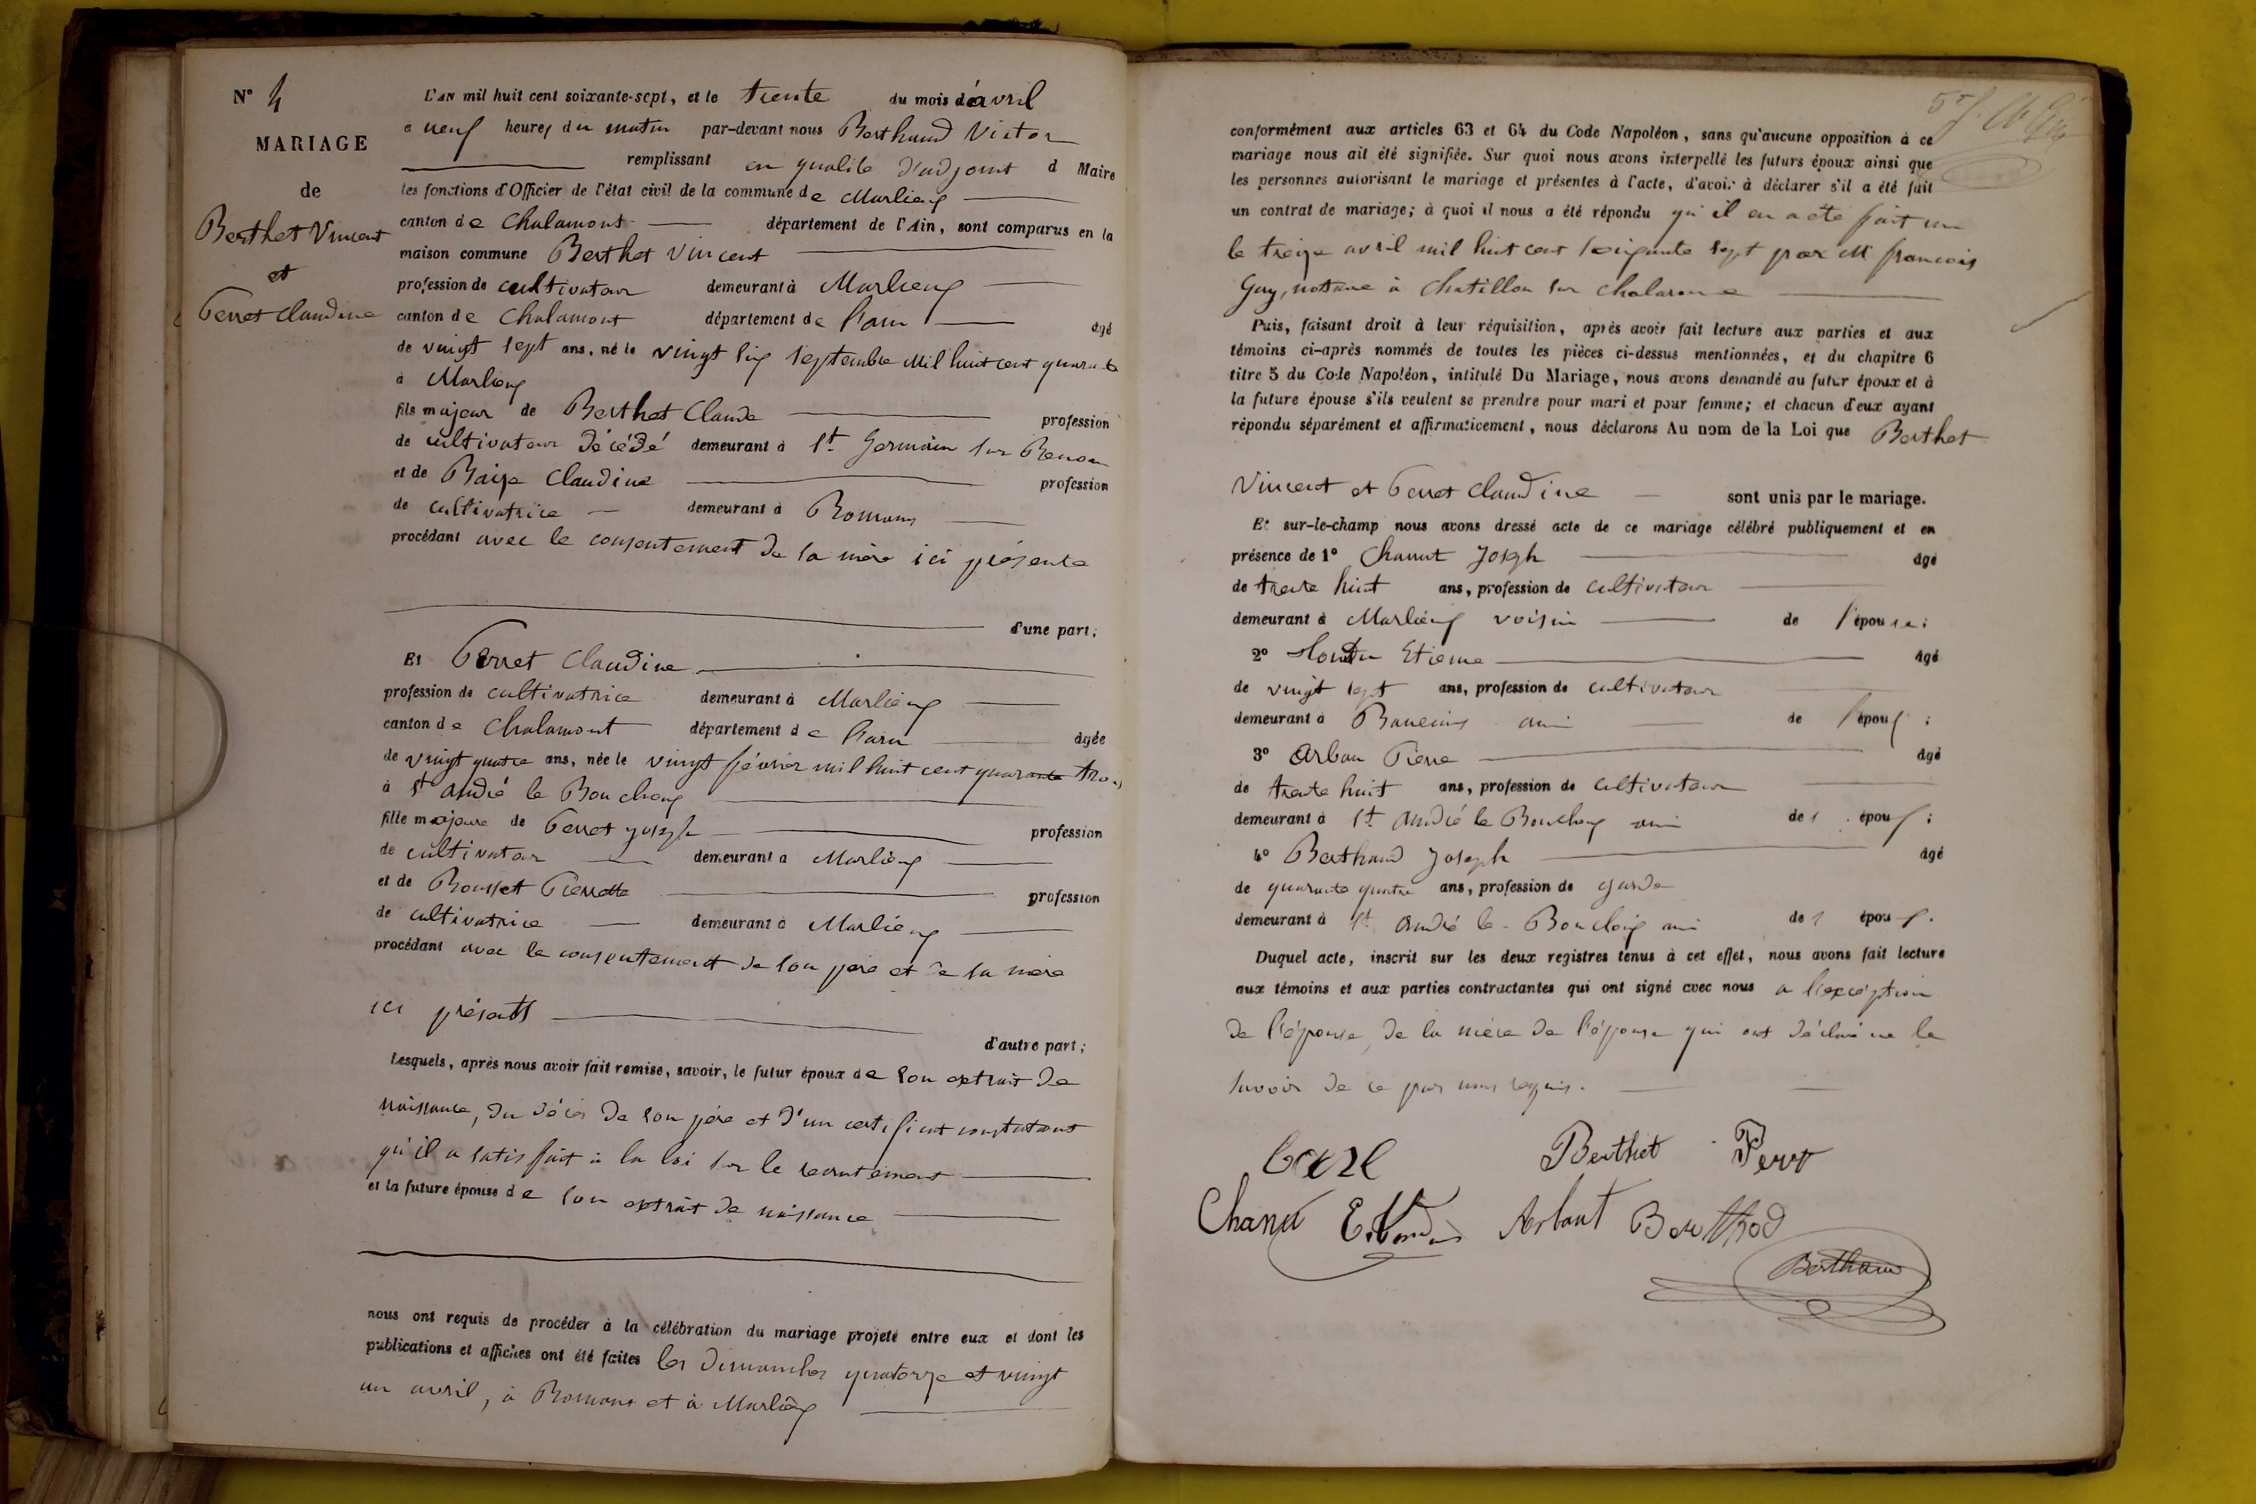 N° 4
MARIAGE
de
Berthet Vincent
et
Perret Claudine
L'AN mil huit cent soixante-sept, et le trente du mois d'avril
a neuf heures du matin par-devant nous Berthaud Victor
remplissant en qualité d'adjoint d Maire
les fonctions d'Officier de l'état civil de la commune de Marlieux
canton de Chalamont département de l'Ain, sont comparus en la
maison commune Berthet Vincent
profession de cultivateur demeurant à Marlieux
canton de Chalamont département de l'ain âgé
de vingt sept ans, né le vingt six septembre mil huit cent quarante
à Marlieux
fils majeur de Berthet Claude profession
de cultivateur décédé demeurant à St Germain sur Renon
et de Baize Claudine profession
de cultivatrice demeurant à Romans
procédant avec le consentement de sa mère ici présente
d'une part;
Et Perret Claudine
profession de cultivatrice demeurant à Marlieux
canton de Chalamont département de l'ain âgée
de vingt quatre ans, née le vingt février mil huit cent quarante trois
à St andré le Bouchoux
fille majeure de Perret joseph profession
de cultivateur demeurant à Marlieux
et de Rousset Pierrette profession
de cultivatrice demeurant à Marlieux
procédant avec le consentement de son père et de sa mère
ici présents
d'autre part;
Lesquels, après nous avoir fait remise, savoir, le futur époux de son extrait de
naissance, du décès de son père et d'un certificat constatant
qu'il a satisfait à la loi sur le recrutement
et la future épouse de son extrait de naissance
nous ont requis de procéder à la célébration du mariage projeté entre eux et dont les
publications et affiches ont été faites les dimanches quatorze et vingt
un avril, à Romans et à Marlieux
conformément aux articles 63 et 64 du Code Napoléon, sans qu'aucune opposition à ce
mariage nous ait été signifiée. Sur quoi nous avons interpellé les futurs époux ainsi que
les personnes autorisant le mariage et présentes à l'acte, d'avoir à déclarer s'il a été fait
un contrat de mariage; à quoi il nous a été répondu qu'il en a été fait un
le treize avril mil huit cent soixante sept par M francois
Guy, notaire à Chatillon sur Chalaronne
Puis, faisant droit à leur réquisition, après avoir fait lecture aux parties et aux
témoins ci-après nommés de toutes les pièces ci-dessus mentionnées, et du chapitre 6
titre 5 du Code Napoléon, intitulé Du Mariage, nous avons demandé au futur époux et à
la future épouse s'ils veulent se prendre pour mari et pour femme; et chacun d'eux ayant
répondu séparément et affirmativement, nous déclarons Au nom de la Loi que Berthet
Vincent et Perret Claudine sont unis par le mariage.
Et sur-le-champ nous avons dressé acte de ce mariage célébré publiquement et en
présence de 1° Chanut Joseph âgé
de trente huit ans, profession de cultivateur
demeurant à Marlieux voisin de l'épouse;
2° Etienne âgé
de vingt sept ans, profession de cultivateur
demeurant à ami de l'époux;
3° Arban Pierre âgé
de trente huit ans, profession de cultivateur
demeurant à St André le Bouchoux ami de l époux;
4° Berthaud Joseph âgé
de quarante quatre ans, profession de garde
demeurant à St André le Bouchoux ami de l époux.
Duquel acte, inscrit sur les deux registres tenus à cet effet, nous avons fait lecture
aux témoins et aux parties contractantes qui ont signé avec nous a l'exception
de l'épouse, de la mère de l'épouse qui ont déclaré ne le
savoir de ce par nous requis.
Berthet Perret
Chanut Arbant Berthod
Berthaud